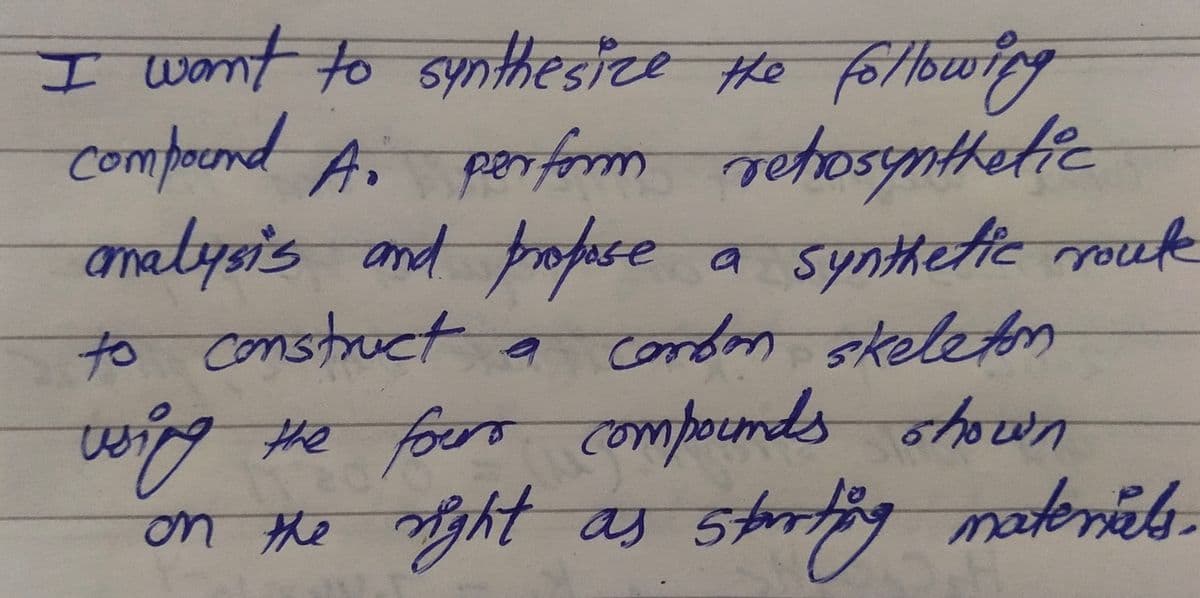 I want to synthesize the following
compound A. perform retrosynthetic
analysis and propose a synthetic route
to construct a carbon skeleton
using the four compounds shown
on the right as starting materials.